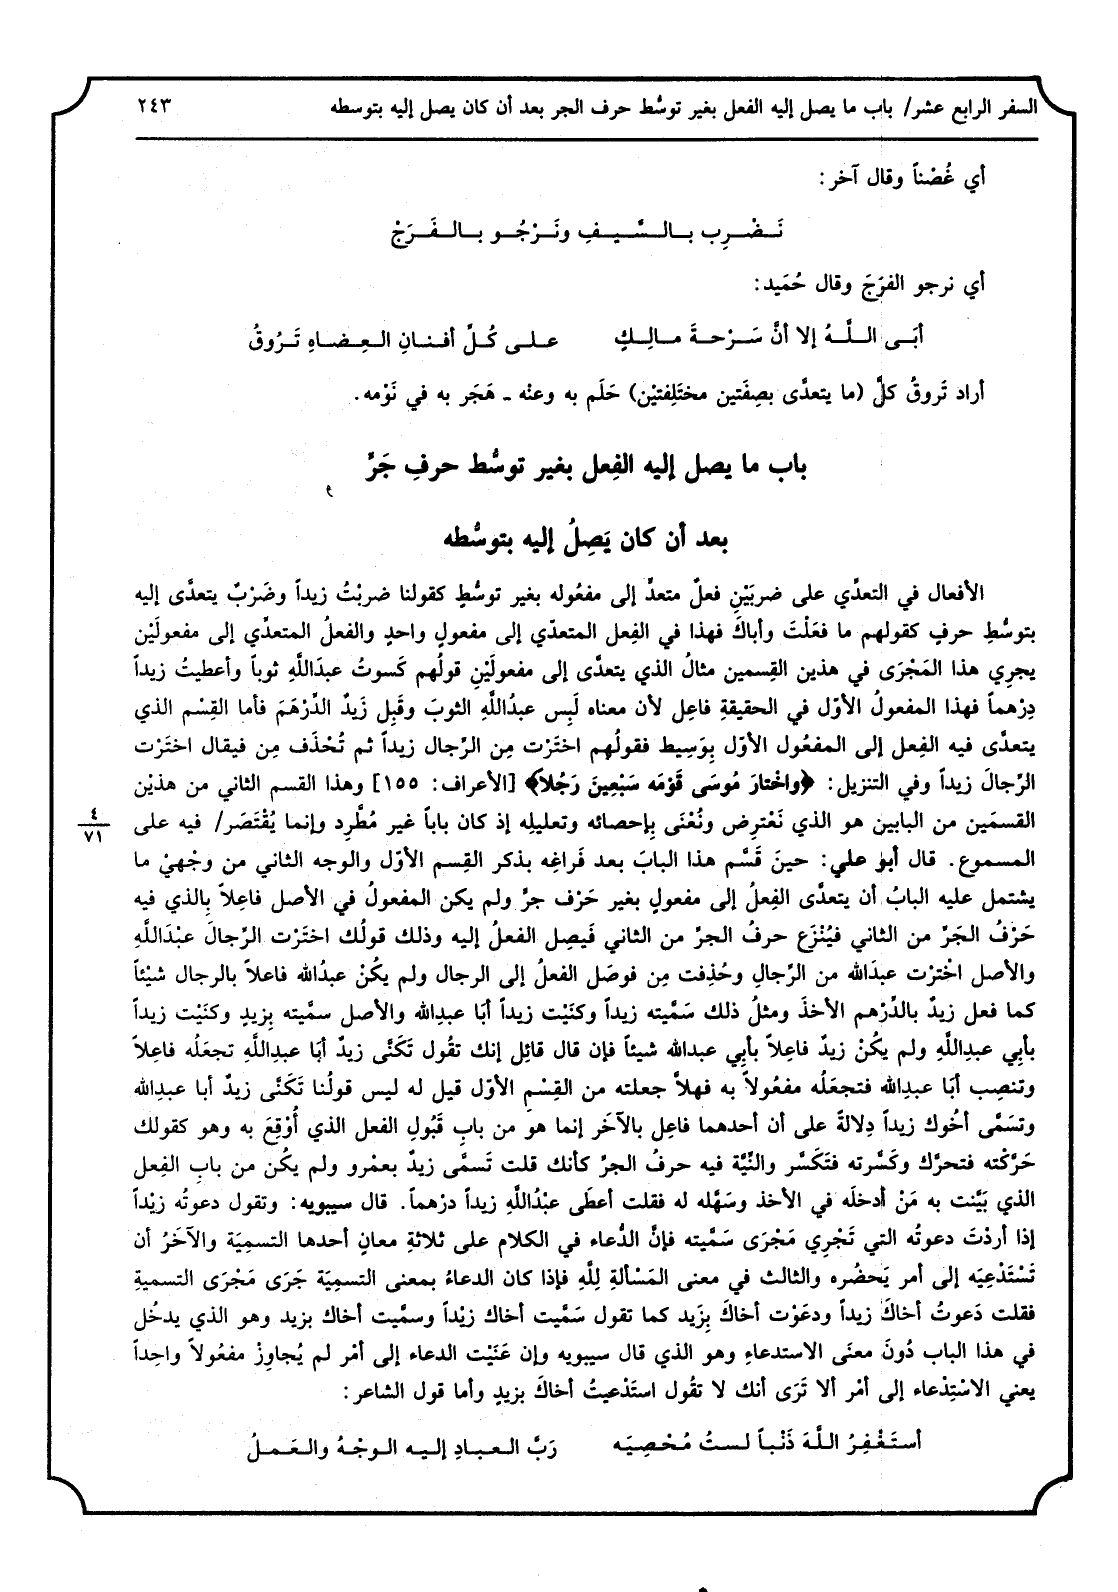 السفر الرابع عشر/ باب ما يصل إليه الفعل بغير توسُّط حرف الجر بعد أن كان يصل إليه بتوسطه ٢٤٣
أي غُصْناً وقال آخر:
نَـضْـرِب بـالـسَّـيـفِ ونَـرْجُـو بـالـفَـرَجْ
أي نرجو الفرَجَ وقال حُمَيد:
أبَـى الـلَّـهُ إلا أنَّ سَـرْحـةَ مـالِـكٍ علـى كُـلِّ أفـنـانِ الـعِـضـاهِ تَـرُوقُ
أراد تَروقُ كلَّ (ما يتعدَّى بصِفَتين مختَلِفتيْن) حَلَم به وعنْه ـ هَجَر به في نَوْمه.
باب ما يصل إليه الفِعل بغير توسُّط حرفِ جَرٍّ
بعد أن كان يَصِلُ إليه بتوسُّطه
الأفعال في التعدِّي على ضربَيْنِ فعلٌ متعدٍّ إلى مفعُوله بغير توسُّطٍ كقولنا ضربْتُ زيداً وضَرْبٌ يتعدَّى إليه
بتوسُّطِ حرفٍ كقولهم ما فعَلْتَ وأباكَ فهذا في الفِعل المتعدّي إلى مفعولٍ واحدٍ والفعلُ المتعدِّي إلى مفعولَيْن
يجرِي هذا المَجْرَى في هذين القِسمين مثالُ الذي يتعدَّى إلى مفعولَيْنِ قولُهم كَسوتُ عبدَاللَّهِ ثوباً وأعطيتُ زيداً
دِرْهماً فهذا المفعولُ الأوّل في الحقيقةِ فاعِل لأن معناه لَبِس عبدُاللَّهِ الثوبَ وقَبِل زَيدٌ الدِّرْهَمَ فأما القِسْم الذي
يتعدَّى فيه الفِعل إلى المفعُول الأوّل بِوَسِيط فقولُهم اختَرْت مِن الرِّجال زيداً ثم تُحْذَف مِن فيقال اختَرْت
الرِّجالَ زيداً وفي التنزيل: ﴿واخْتارَ مُوسَى قَوْمَه سَبْعِينَ رَجُلاً﴾ [الأعراف: ١٥٥] وهذا القسم الثاني من هذيْن
القسمَين من البابين هو الذي نَعْترِض ونُعْنَى بِإحصائه وتعليلِه إذ كان باباً غير مُطَّرِد وإنما يُقْتَصَر/ فيه على
٤
٧١
المسموع. قال أبو علي: حينَ قَسَّم هذا البابَ بعد فَراغِه بذكر القِسم الأوّل والوجه الثاني من وجْهيْ ما
يشتمل عليه البابُ أن يتعدَّى الفِعلُ إلى مفعولٍ بغير حَرْف جرٍّ ولم يكن المفعولُ في الأصل فاعِلاً بِالذي فيه
حَرْفُ الجَرِّ من الثاني فيُنْزَع حرفُ الجرِّ من الثاني فَيصِل الفعلُ إليه وذلك قولُك اختَرْت الرِّجالَ عبْدَاللَّهِ
والأصل اخْترْت عبدَالله من الرِّجالِ وحُذِفت مِن فوصَل الفعلُ إلى الرجال ولم يكُنْ عبدُالله فاعلاً بالرجال شيْئاً
كما فعل زيدٌ بالدِّرْهم الأخذَ ومثلُ ذلك سَمَّيته زيداً وكنَيْت زيداً أبَا عبدِالله والأصل سمَّيته بِزيدٍ وكنَيْت زيداً
بأبي عبدِاللَّهِ ولم يكُنْ زيدٌ فاعِلاً بأبي عبدالله شيئاً فإن قال قائِل إنك تقُول تَكَنَّى زيدٌ أبَا عبدِاللَّهِ تجعَلُه فاعِلاً
وتنصِب أبَا عبدِالله فتجعَلُه مفعُولاً به فهلاَّ جعلته من القِسْمِ الأوّل قيل له ليس قولُنا تَكَنَّى زيدٌ أبا عبدِالله
وتسَمَّى أخُوك زيداً دِلالةً على أن أحدهما فاعِل بالآخَر إنما هو من بابِ قَبُولِ الفعل الذي أُوْقِعَ به وهو كقولك
حَرَّكْته فتحرَّك وكَسَّرته فتَكَسَّر والنِّيَّة فيه حرفُ الجرِّ كأنك قلت تَسمَّى زيدٌ بعمْرو ولم يكُن من بابِ الفِعل
الذي بَيَّنت به مَنْ أدخلَه في الأخذ وسَهَّله له فقلت أعطَى عبْدُاللَّهِ زيداً درْهماً. قال سيبويه: وتقول دعوتُه زيْداً
إذا أردْتَ دعوتُه التي تَجْرِي مَجْرَى سَمَّيته فإنَّ الدُّعاء في الكلام على ثلاثةِ معانٍ أحدها التسمِيَة والآخَرُ أن
تَسْتَدْعِيَه إلى أمر يَحضُره والثالث في معنى المَسْألةِ لِلَّهِ فإذا كان الدعاءُ بمعنى التسمِيَة جَرَى مَجْرَى التسميةِ
فقلت دَعوتُ أخاكَ زيداً ودعَوْت أخاكَ بِزَيد كما تقول سَمَّيت أخاك زيْداً وسمَّيت أخاك بزيد وهو الذي يدخُل
في هذا الباب دُونَ معنَى الاستدعاءِ وهو الذي قال سيبويه وإن عَنَيْت الدعاء إلى أمْر لم يُجاوِزْ مفعُولاً واحِداً
يعني الاسْتِدْعاء إلى أمْر ألا تَرَى أنك لا تقُول استَدْعيتُ أخاكَ بزيدٍ وأما قول الشاعر:
أستَـغْـفِـرُ الـلَّـهَ ذَنْـبـاً لـسـتُ مُـحْـصِيَـه رَبَّ الـعـبـادِ إلـيـه الـوجْـهُ والـعَـمـلُ